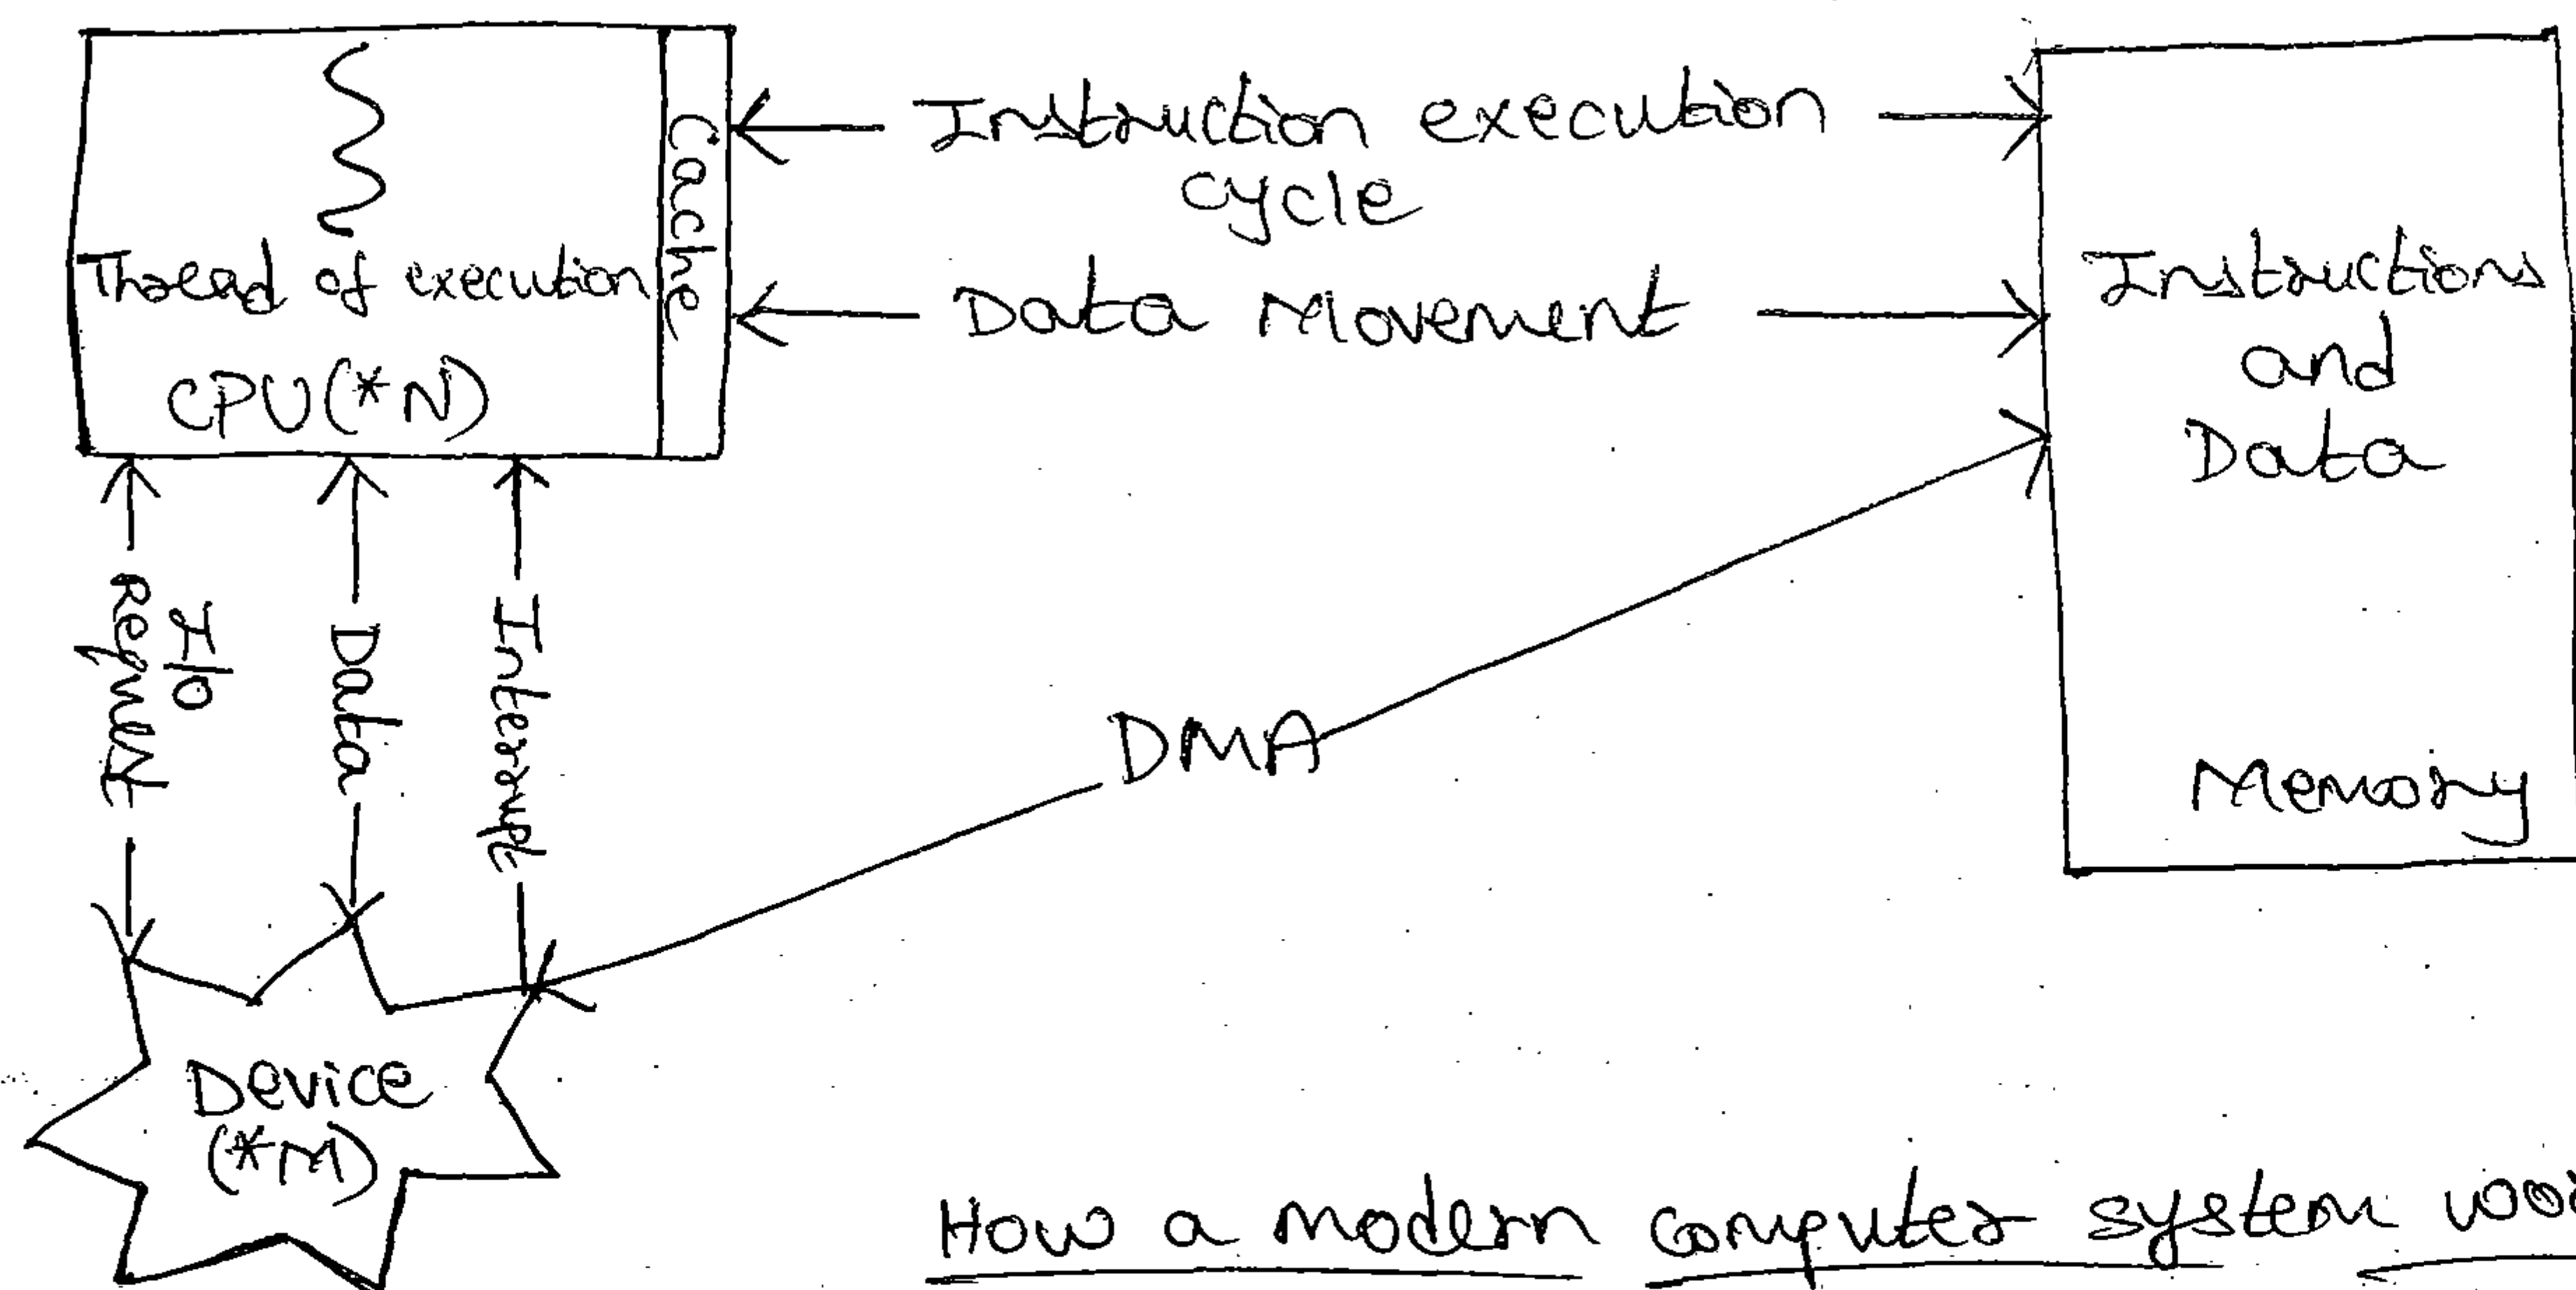 Thread of execution
CPU(*N)
Cache
Instruction execution
cycle
Data Movement
Instructions
and
Data
Memory
I/O
Request
Data
Interrupt
DMA
Device
(*M)
How a modern computer system